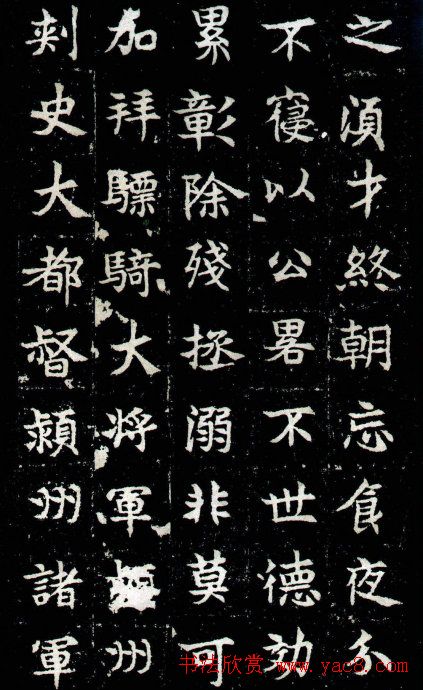 之須才終朝忘食夜分
不寢以公畧不世德効
累彰除殘拯溺非莫可
加拜驃騎大將軍州
刾史大都督潁州諸軍
书法欣赏 www.yac8.com